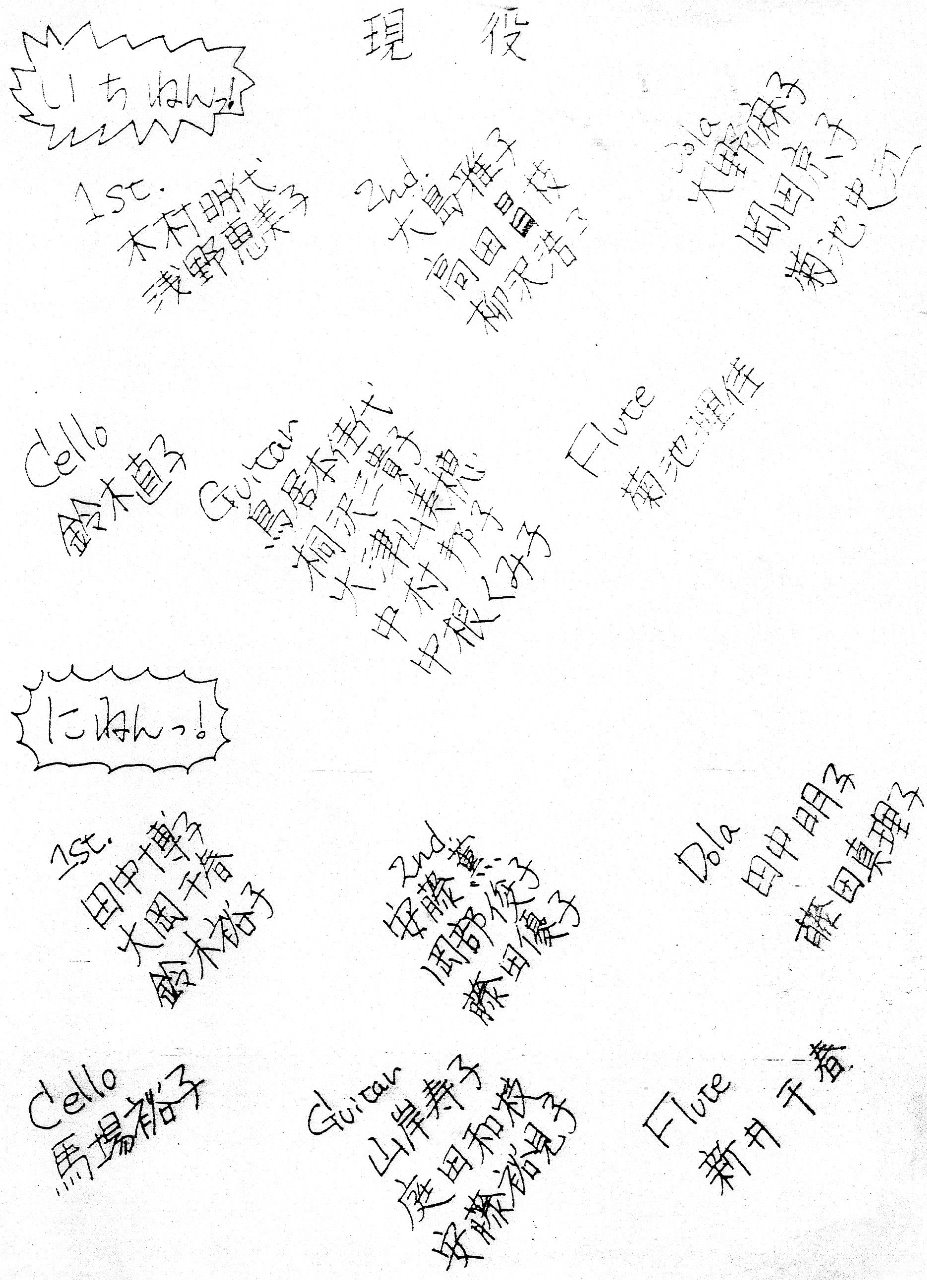 現役
いちねんっ!
1st.
木村明代
浅野恵美子
2nd.
大島雅子
高田昌枝
柳沢浩子
Dola
大野麻子
岡田京子
菊池史子
Cello
鈴木直子
Guitar
鳥居本佳代
桐沢貴子
大津山美穂
中村邦子
中根くみ子
Flute
菊池理佳
にねんっ!
1st.
田中博子
大岡千春
鈴木裕子
2nd.
安藤薫
岡部俊子
藤田優子
Dola
田中明子
藤田真理子
Cello
馬場裕子
Guitar
山岸寿子
庭田和枝
安藤裕見子
Flute
新井千春